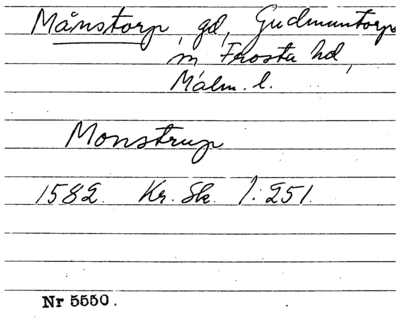 Månstorp, gd, Gudmuntorp
sn Frosta hd,
Malm. l.
Monstrup
1582. Kr. Sk. 1:251.
Nr 5550.